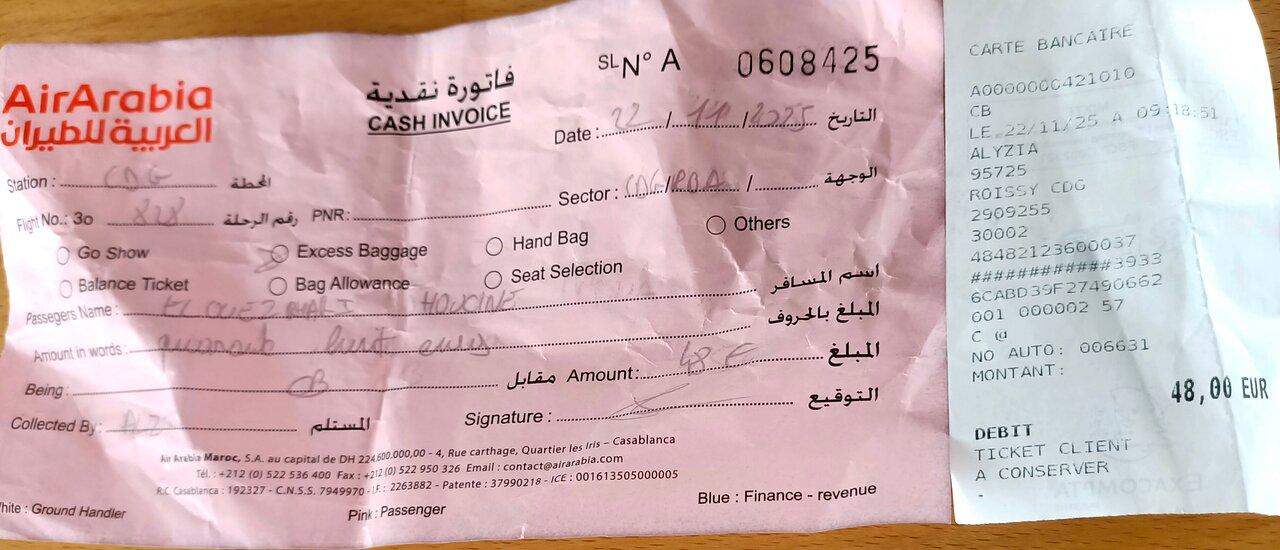 AirArabia
العربية للطيران
فاتورة نقدية
CASH INVOICE
SL N° A 0608425
Date : 22 / 11 / 2025 التاريخ
Station : CDG المحطة
Sector : CDG/RBA / الوجهة
Flight No.: 3o 828 رقم الرحلة PNR:
Go Show
Excess Baggage
Hand Bag
Others
Balance Ticket
Bag Allowance
Seat Selection
Passegers Name : HOUCINE اسم المسافر
Amount in words : quarante huit euros المبلغ بالحروف
Being : CB مقابل Amount: 48 € المبلغ
Collected By : AZ المستلم Signature : التوقيع
Air Arabia Maroc, S.A. au capital de DH 224.600.000,00 - 4, Rue carthage, Quartier les Iris – Casablanca
Tél. : +212 (0) 522 536 400 Fax : +212 (0) 522 950 326 Email : contact@airarabia.com
R.C. Casablanca : 192327 - C.N.S.S. 7949970 - I.F. : 2263882 - Patente : 37990218 - ICE : 001613505000005
White : Ground Handler
Pink : Passenger
Blue : Finance - revenue
CARTE BANCAIRE
A0000000421010
CB
LE 22/11/25 A 09:18:51
ALYZIA
95725
ROISSY CDG
2909255
30002
48482123600037
############3933
6CABD39F27490662
001 000002 57
C @
NO AUTO: 006631
MONTANT:
48,00 EUR
DEBIT
TICKET CLIENT
A CONSERVER
-